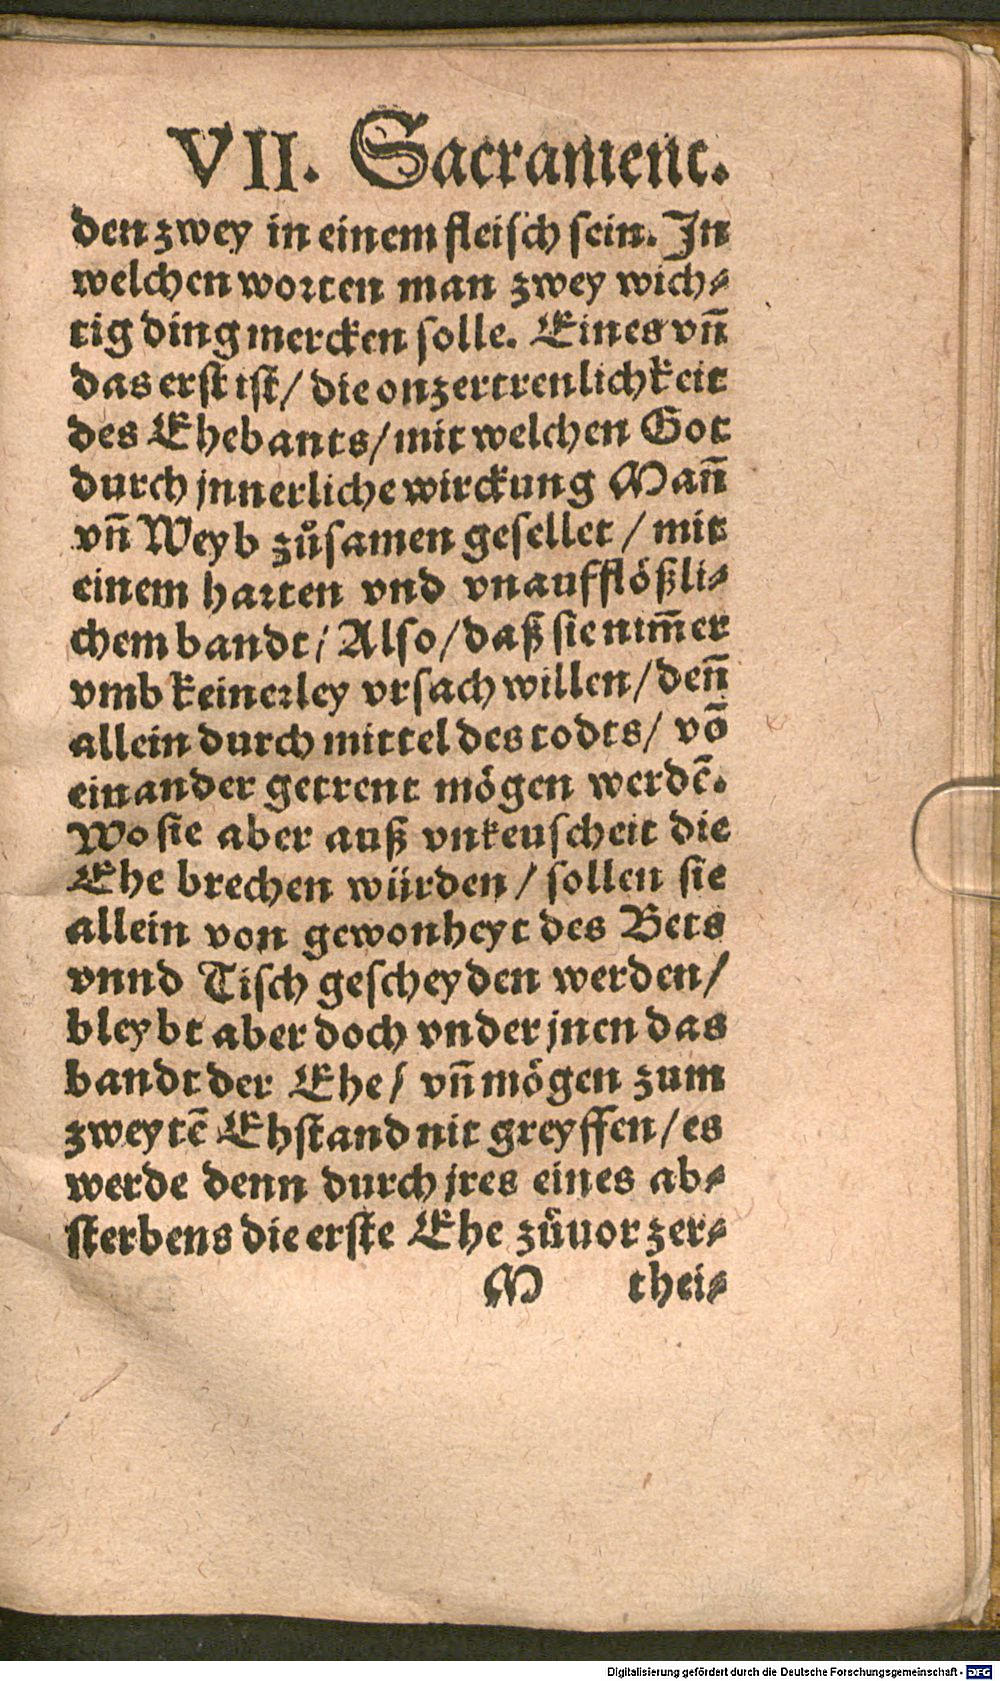 VII. Sacrament.
den zwey in einem fleisch sein. In
welchen worten man zwey wich⸗
tig ding mercken solle. Eines vñ
das erst ist/ die onzertrenlichkeit
des Ehebants/ mit welchen Got
durch jnnerliche wirckung Mañ
vñ Weyb zůsamen gesellet / mit
einem harten vnd vnaufflößli⸗
chem bandt/ Also/ daß sie nim̃er
vmb keinerley vrsach willen/ deñ
allein durch mittel des todts/ võ
einander getrent mögen werdẽ.
Wo sie aber auß vnkeuscheit die
Ehe brechen würden/ sollen sie
allein von gewonheyt des Bets
vnnd Tisch gescheyden werden/
bleybt aber doch vnder jnen das
bandt der Ehe/ vñ mögen zum
zweytẽ Ehstand nit greyffen/ es
werde denn durch jres eines ab⸗
sterbens die erste Ehe zůuor zer⸗
M thei⸗
Digitalisierung gefördert durch die Deutsche Forschungsgemeinschaft - DFG